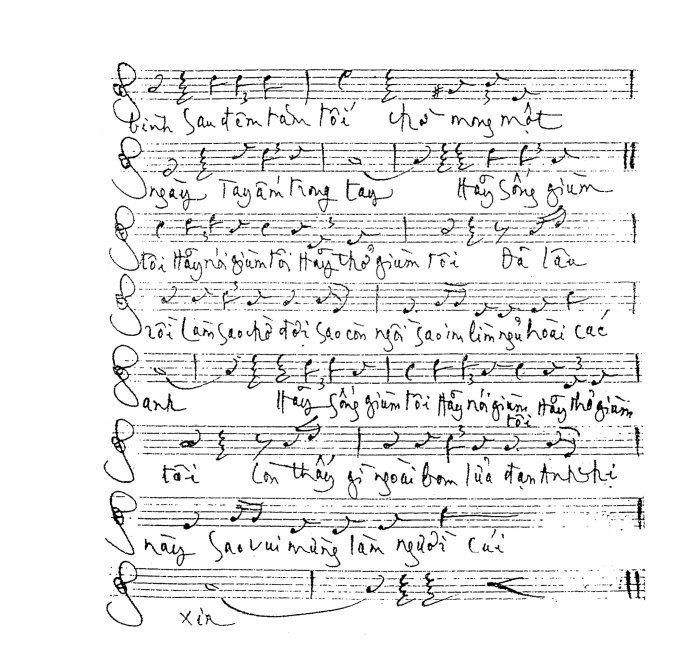 bình Sau đêm tăm tối chờ mong một
ngày Tay ấm trong tay Hãy sống giùm
tôi Hãy nói giùm tôi Hãy thở giùm tôi Đã lâu
rồi Làm sao chờ đợi Sao còn ngồi sao im lìm ngủ hoài các
anh Hãy sống giùm tôi Hãy nói giùm tôi Hãy thở giùm
tôi Còn thấy gì ngoài bom lửa đạn Anh chị
này Sao vui mừng làm người cúi
xin